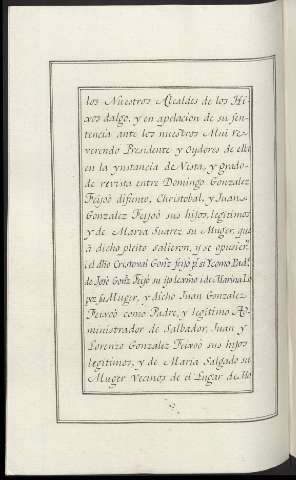 los Nuestros Alcaldes de los Hi
xos dalgo, y en apelacion de su sen
tencia ante los nuestros Mui re
verendo Presidente y Oydores de ella
en la ynstancia de Vista, y grado
de revista entre Domingo Gonzalez
Feijoó difunto, Christobal, y Juan
Gonzalez Feijoó sus hijos, legitimos
y de Maria Suarez su Muger, que
á dicho pleito salieron, y se opusiern
el dho Cristoval Gonz. feijo pr. si Y como
de Jose Gonz. Feijo su ijo lexmo i de Marina Lo
pez su Muger, y dicho Juan Gonzalez
Feixoó como Padre, y legitimo Ad
ministrador de Salbador, Juan y
Lorenzo Gonzalez Feixoó sus hijos
legitimos, y de Maria Salgado su
Muger Vecinos de el Lugar de Mo